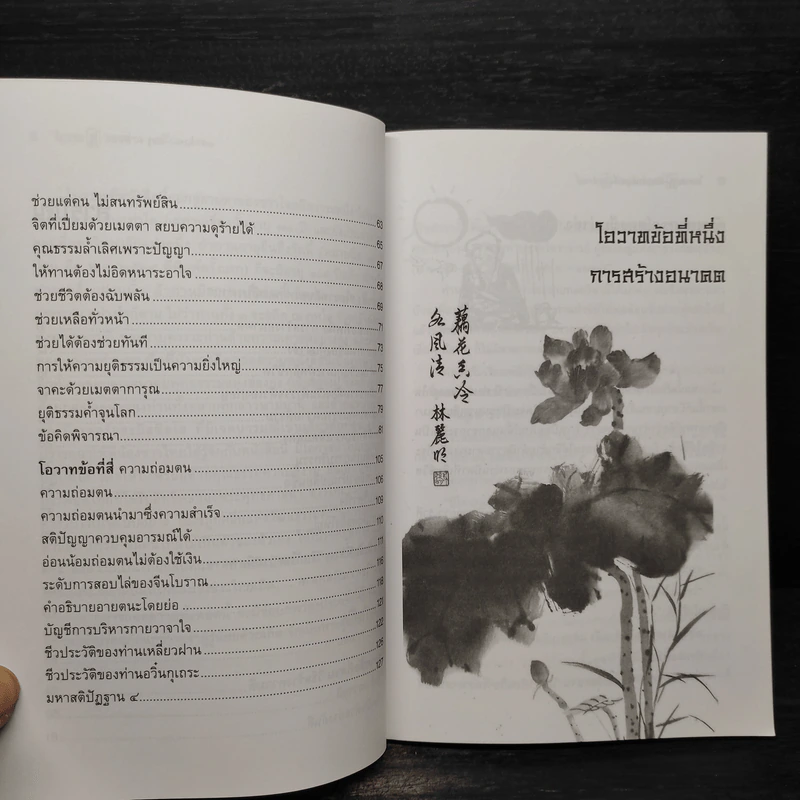 ช่วยแต่คน ไม่สนทรัพย์สิน 63
จิตที่เปี่ยมด้วยเมตตา สยบความดุร้ายได้ 65
คุณธรรมล้ำเลิศเพราะปัญญา 67
ให้ทานต้องไม่อิดหนาระอาใจ 68
ช่วยชีวิตต้องฉับพลัน 69
ช่วยเหลือทั่วหน้า 71
ช่วยได้ต้องช่วยทันที 73
การให้ความยุติธรรมเป็นความยิ่งใหญ่ 75
จาคะด้วยเมตตาการุณ 77
ยุติธรรมค้ำจุนโลก 79
ข้อคิดพิจารณา 81
โอวาทข้อที่สี่ ความถ่อมตน 105
ความถ่อมตน 106
ความถ่อมตนนำมาซึ่งความสำเร็จ 109
สติปัญญาควบคุมอารมณ์ได้ 110
อ่อนน้อมถ่อมตนไม่ต้องใช้เงิน 111
ระดับการสอบไล่ของจีนโบราณ 116
คำอธิบายอายตนะโดยย่อ 118
บัญชีการบริหารกายวาจาใจ 121
ชีวประวัติของท่านเหลี่ยวฝาน 122
ชีวประวัติของท่านอวิ๋นกุเถระ 126
มหาสติปัฏฐาน ๔ 127
โอวาทข้อที่หนึ่ง
การสร้างอนาคต
藕花香冷
水風清
林麗明